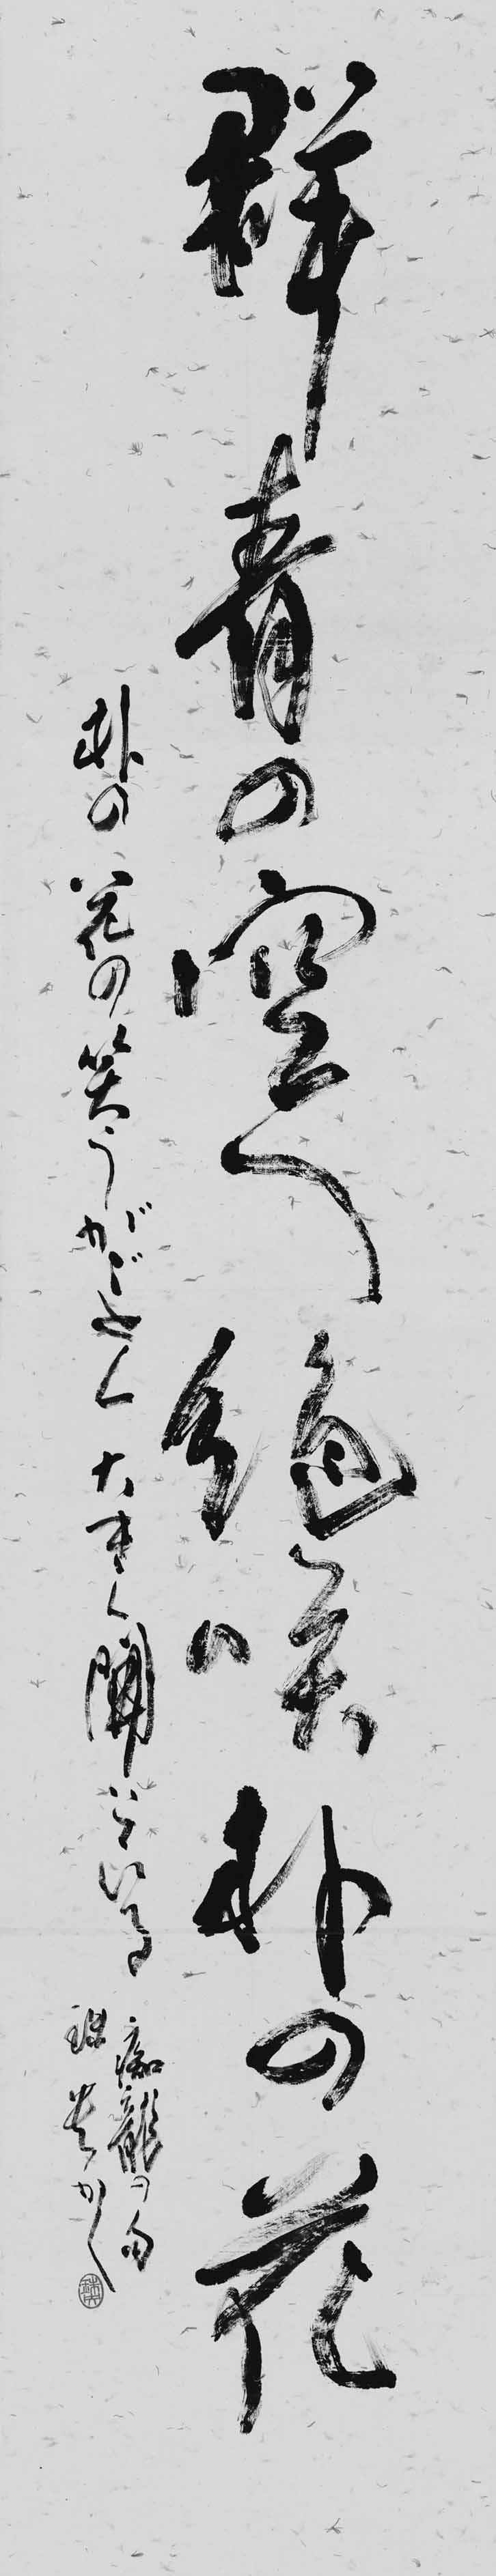 群青の空へ絶咲朴の花
朴の花の笑うがごとく大きく開いている
痴龍の句
かく